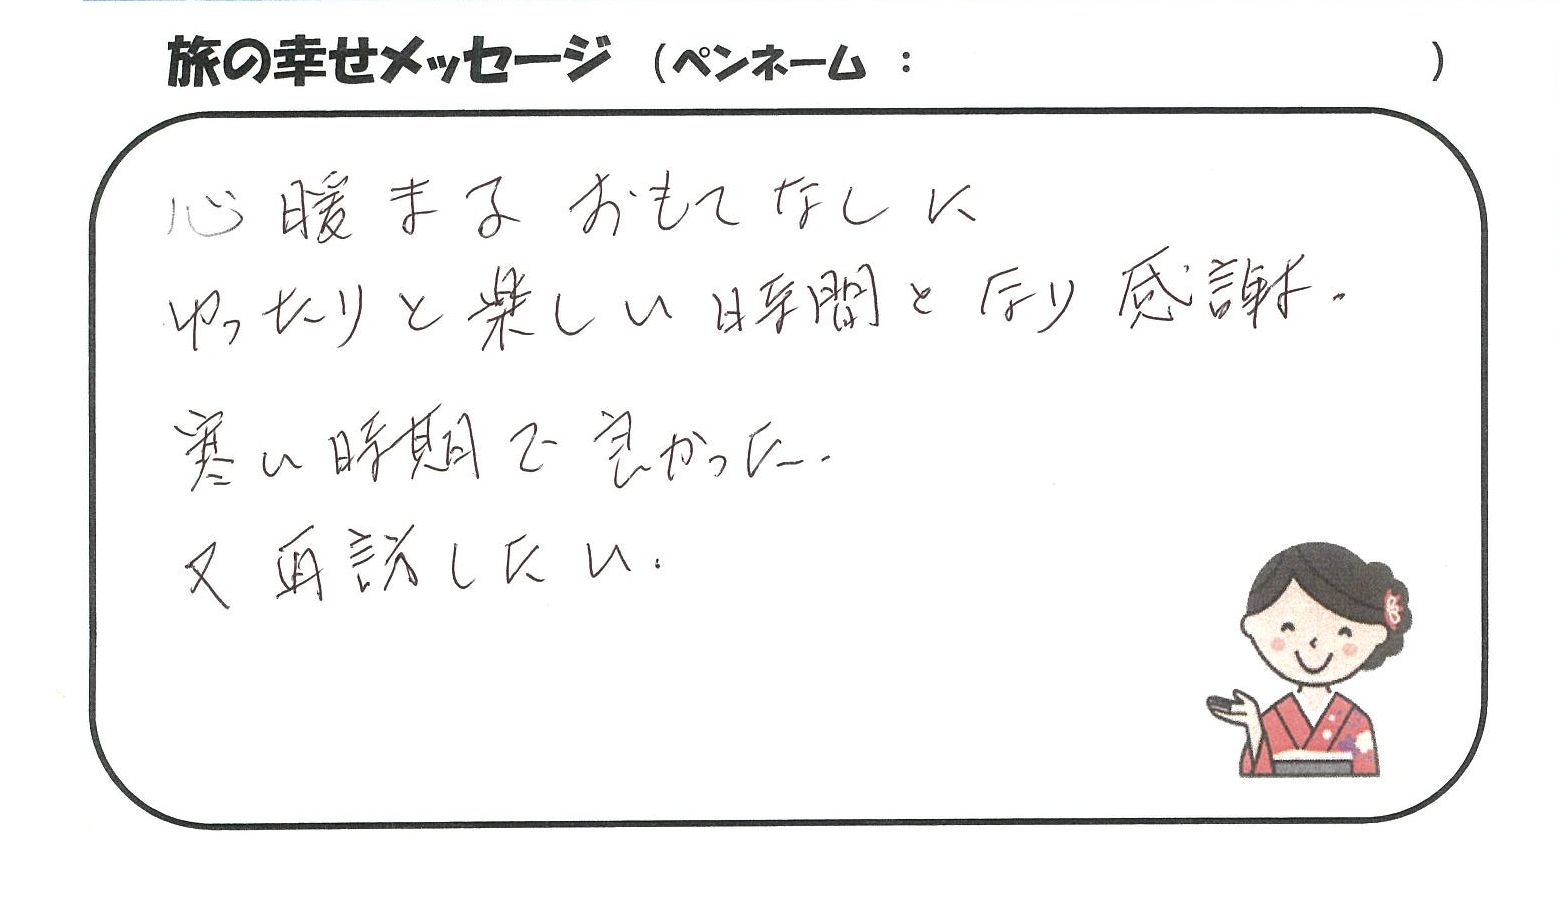 旅の幸せメッセージ（ペンネーム：　　　　　　）
心暖まるおもてなしに
ゆったりと楽しい時間となり感謝。
寒い時期で良かった。
又再訪したい。